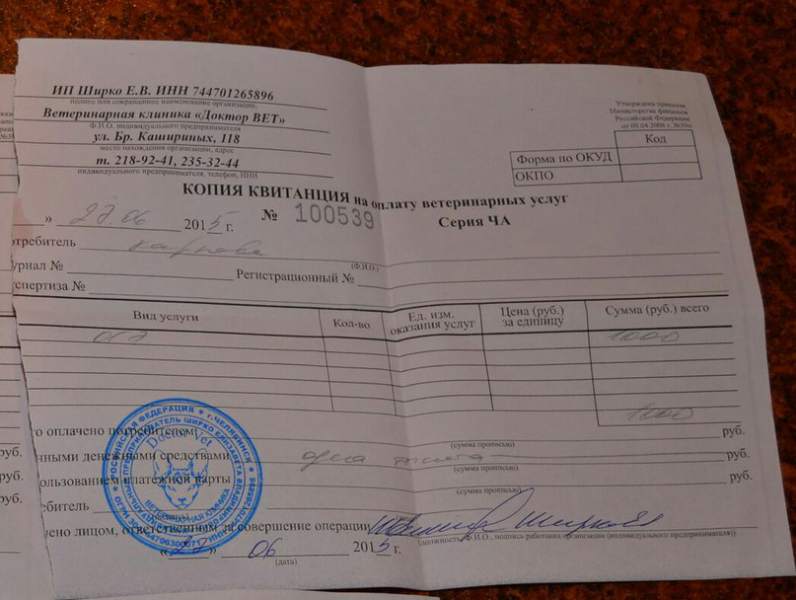 ИП Ширко Е.В. ИНН 744701265896
полное или сокращенное наименование организации,
Ветеринарная клиника «Доктор ВЕТ»
Ф.И.О. индивидуального предпринимателя
ул. Бр. Кашириных, 118
место нахождения организации, адрес
т. 218-92-41, 235-32-44
индивидуального предпринимателя, телефон, ИНН
Утверждена приказом
Министерства финансов
Российской Федерации
Код
Форма по ОКУД
ОКПО
КОПИЯ КВИТАНЦИЯ на оплату ветеринарных услуг
» 06 2015 г. № 100539 Серия ЧА
отребитель
(Ф.И.О.)
урнал № Регистрационный №
спертиза №
Вид услуги Кол-во Ед. изм. оказания услуг Цена (руб.) за единицу Сумма (руб.) всего
1000
1000
о оплачено потребителем: руб.
(сумма прописью)
ными денежными средствами одна тысяча руб.
(сумма прописью)
ользованием платежной карты руб.
(сумма прописью)
ебитель
ено лицом, ответственным за совершение операции
(должность, Ф.И.О., подпись работника организации (индивидуального предпринимателя))
06 2015 г.
(дата)
РОССИЙСКАЯ ФЕДЕРАЦИЯ * г. ЧЕЛЯБИНСК
ПРЕДПРИНИМАТЕЛЬ ШИРКО ЕЛИЗАВЕТА
Doctor Vet
ВЕТЕРИНАРНАЯ КЛИНИКА
руб.
руб.